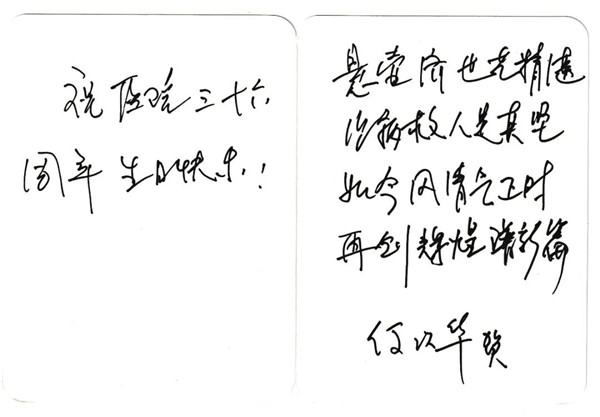 祝医院三十六
周年生日快乐!
悬壶济世克精湛
治病救人是真坚
如今风清气正时
再创辉煌谱新篇
何以华贺